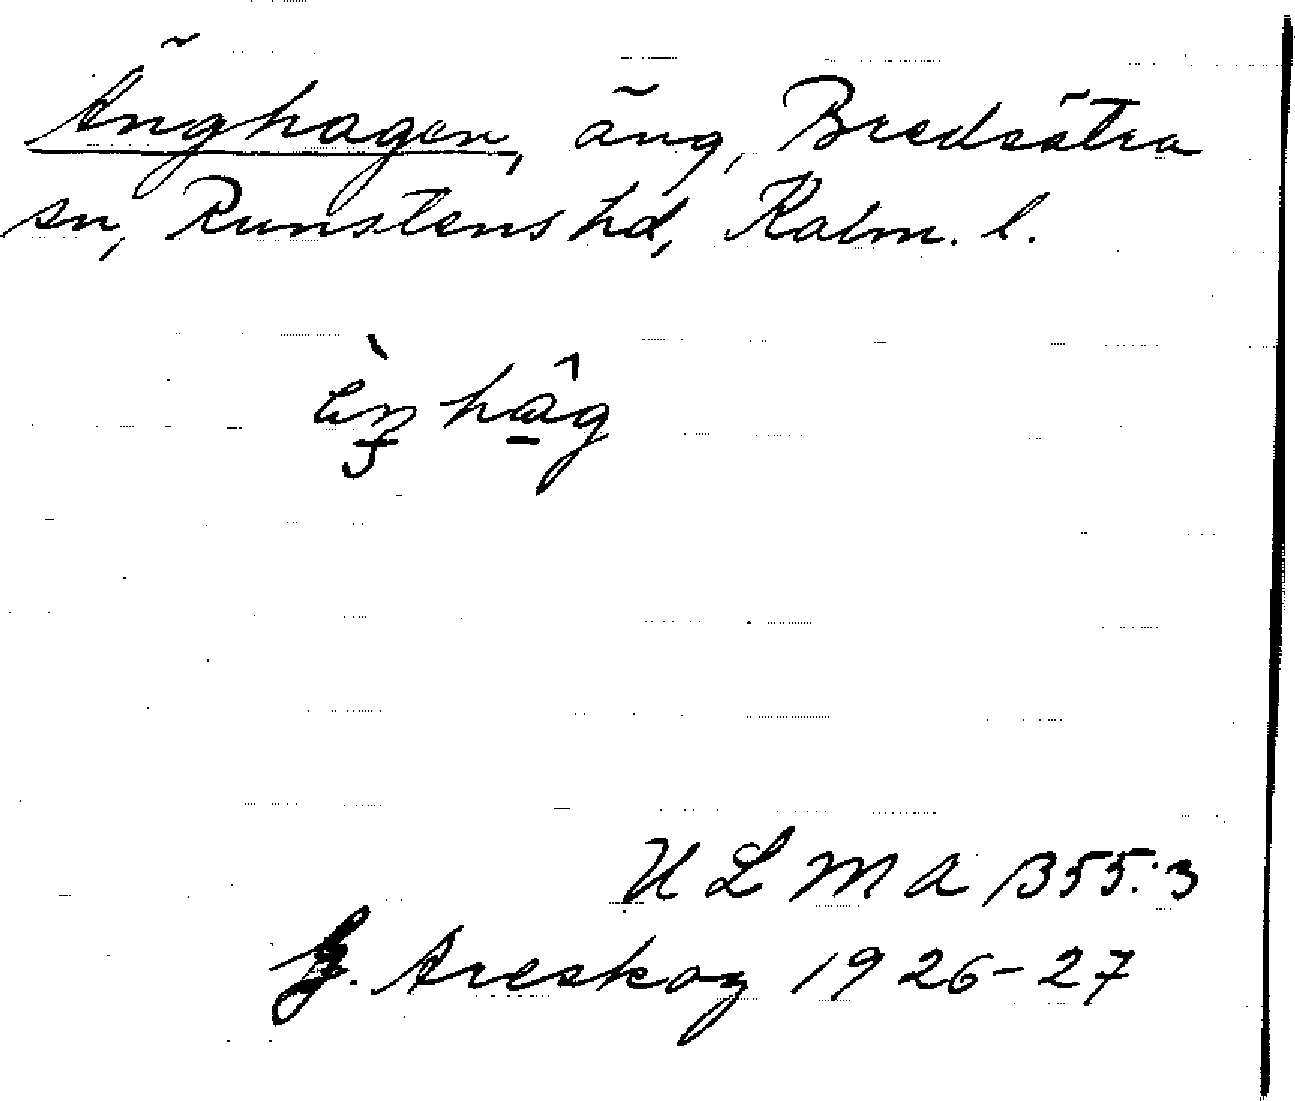 Änghagen, äng, Bredsätra
sn, Runstens hd, Kalm. l.
hâg
U L M A 355:3
G. Areskog 1926-27